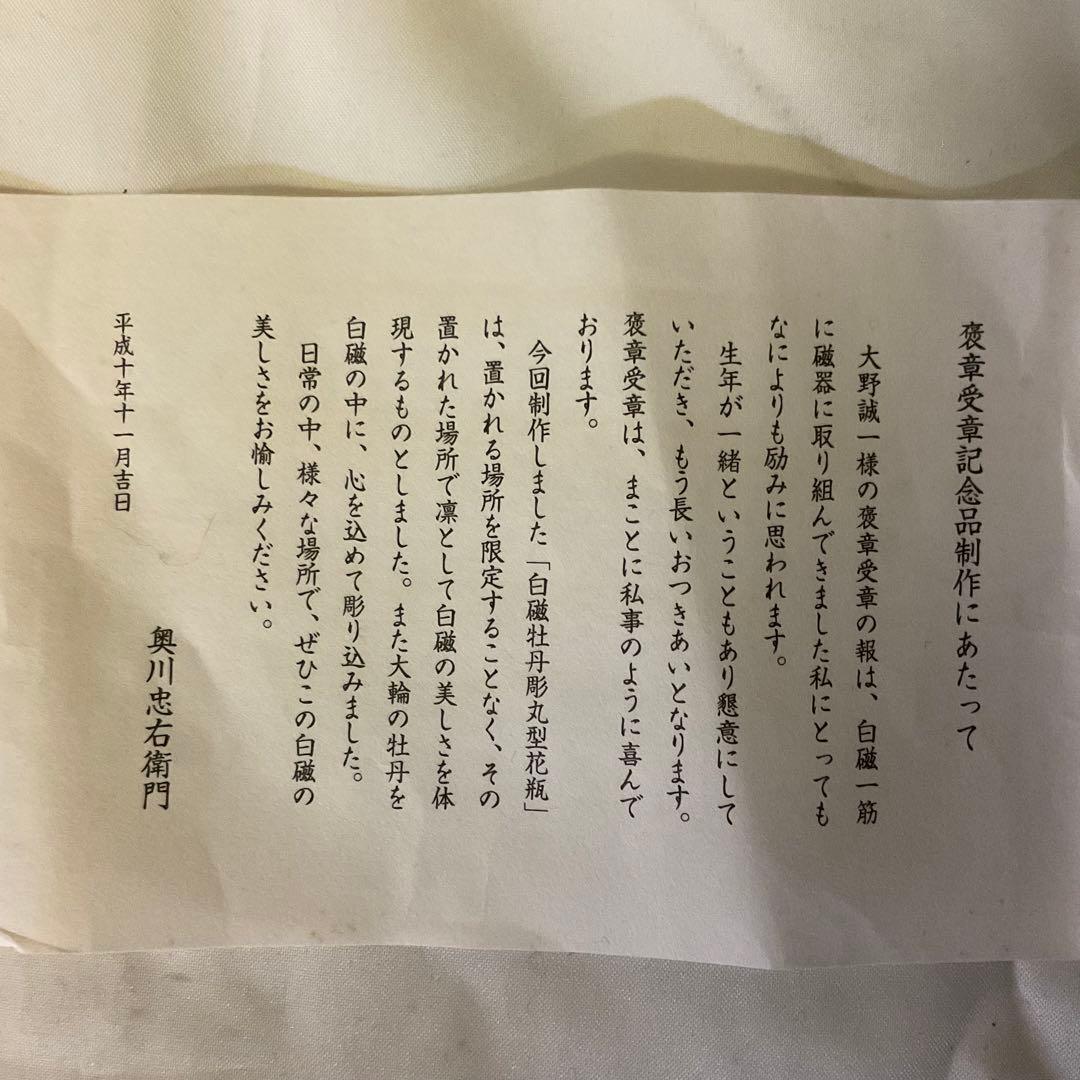 褒章受章記念品制作にあたって
大野誠一様の褒章受章の報は、白磁一筋
に磁器に取り組んできました私にとっても
なによりも励みに思われます。
生年が一緒ということもあり懇意にして
いただき、もう長いおつきあいとなります。
褒章受章は、まことに私事のように喜んで
おります。
今回制作しました「白磁牡丹彫丸型花瓶」
は、置かれる場所を限定することなく、その
置かれた場所で凛として白磁の美しさを体
現するものとしました。また大輪の牡丹を
白磁の中に、心を込めて彫り込みました。
日常の中、様々な場所で、ぜひこの白磁の
美しさをお愉しみください。
奥川忠右衛門
平成十年十一月吉日